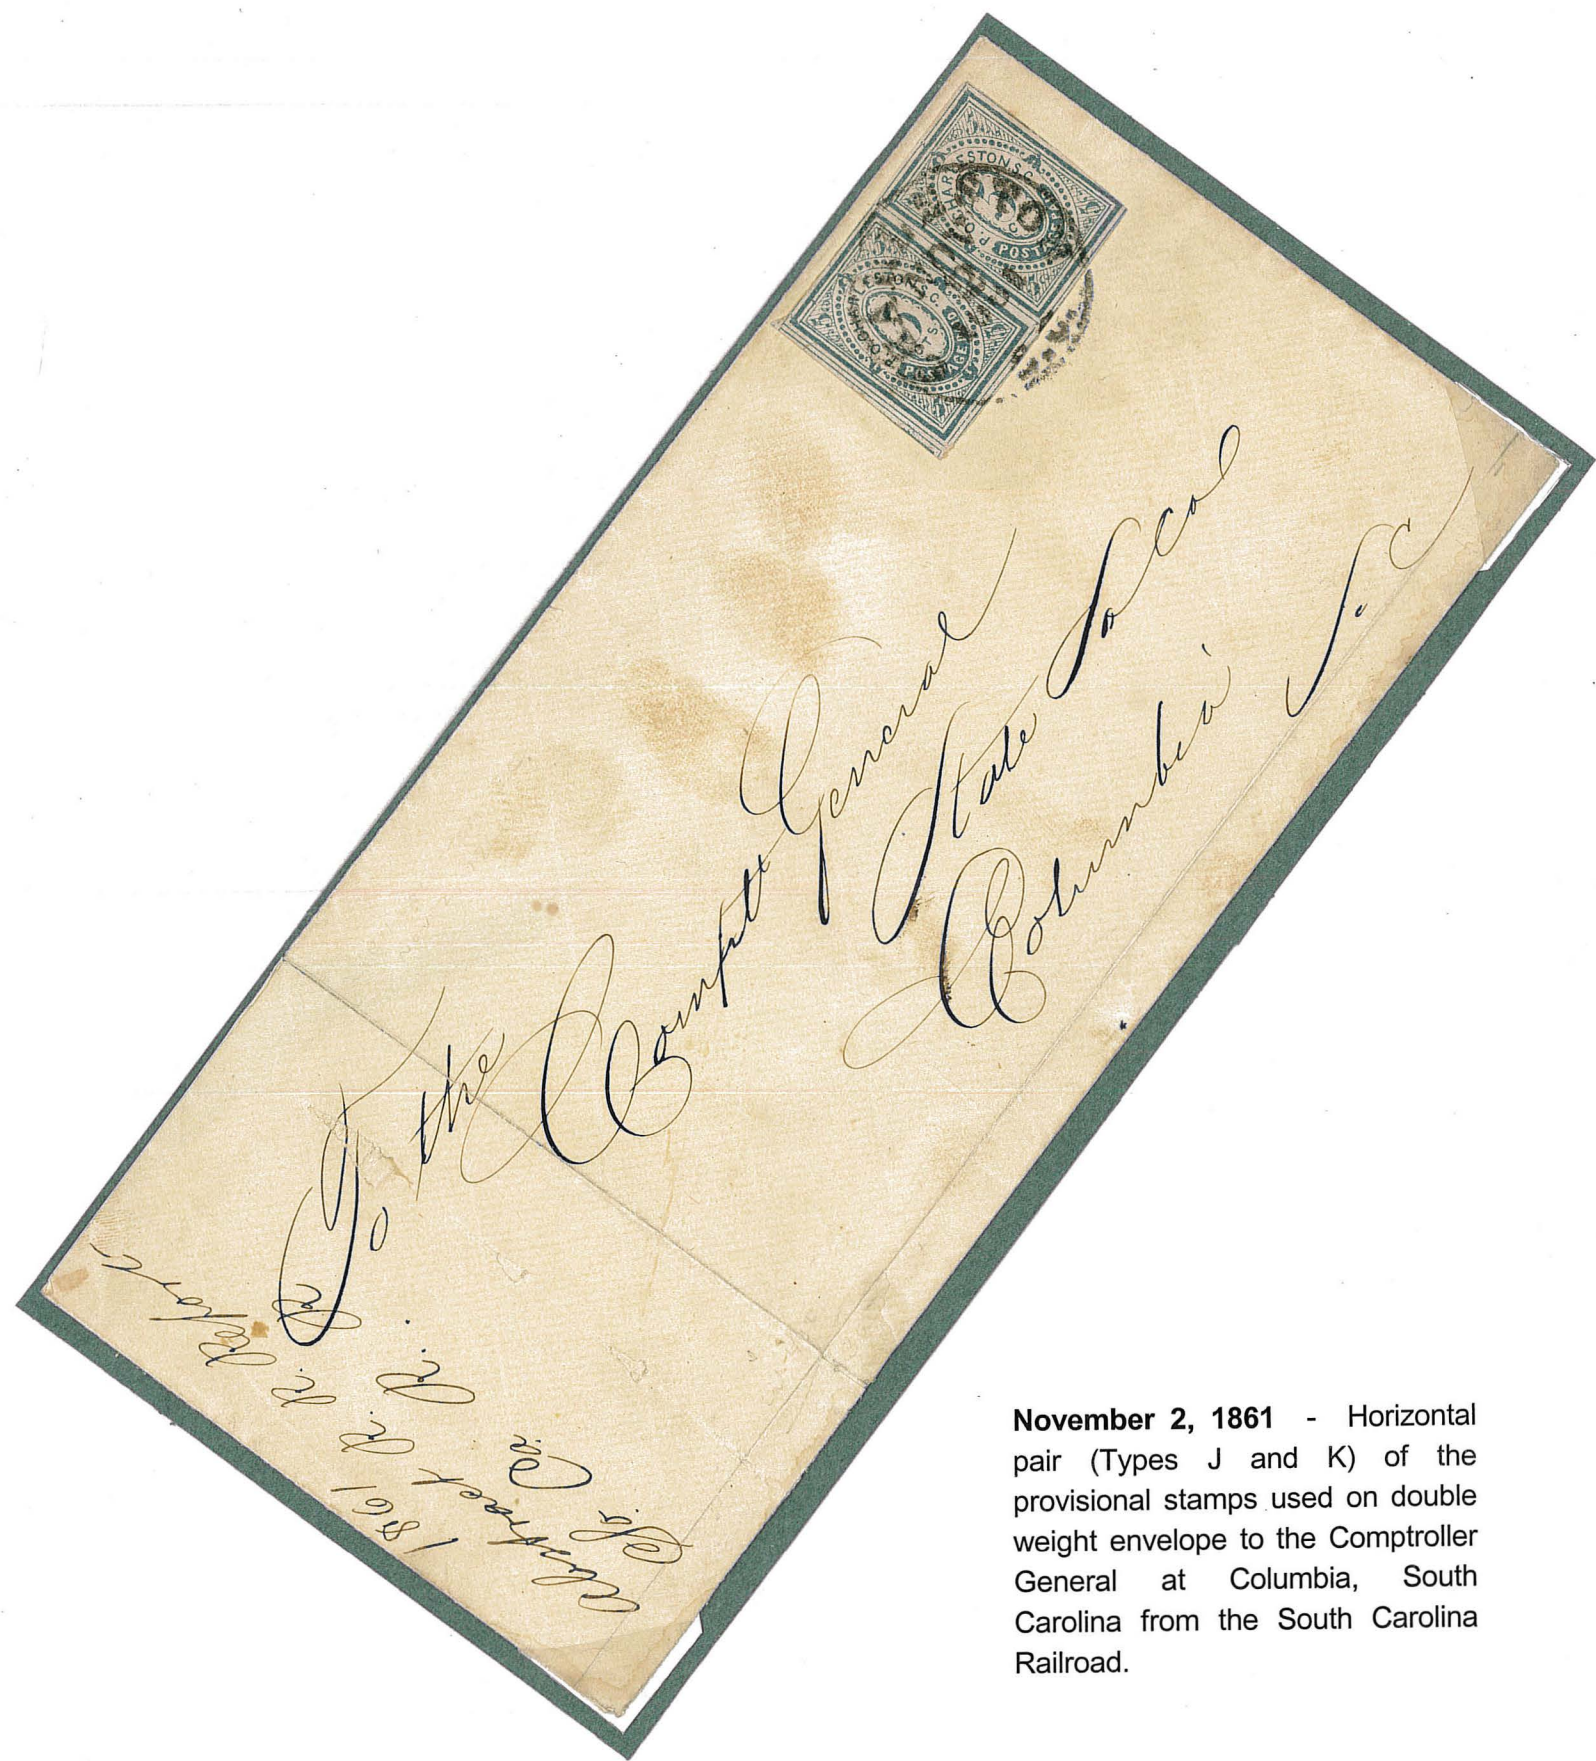 P.O. CHARLESTON, S.C. POSTAGE
P.O. CHARLESTON, S.C. POSTAGE
To the
Comptr General
State So Cal
Columbia
S. C
1861 R. R. Report
abstract R. R.
So. Ca.
November 2, 1861 - Horizontal
pair (Types J and K) of the
provisional stamps used on double
weight envelope to the Comptroller
General at Columbia, South
Carolina from the South Carolina
Railroad.